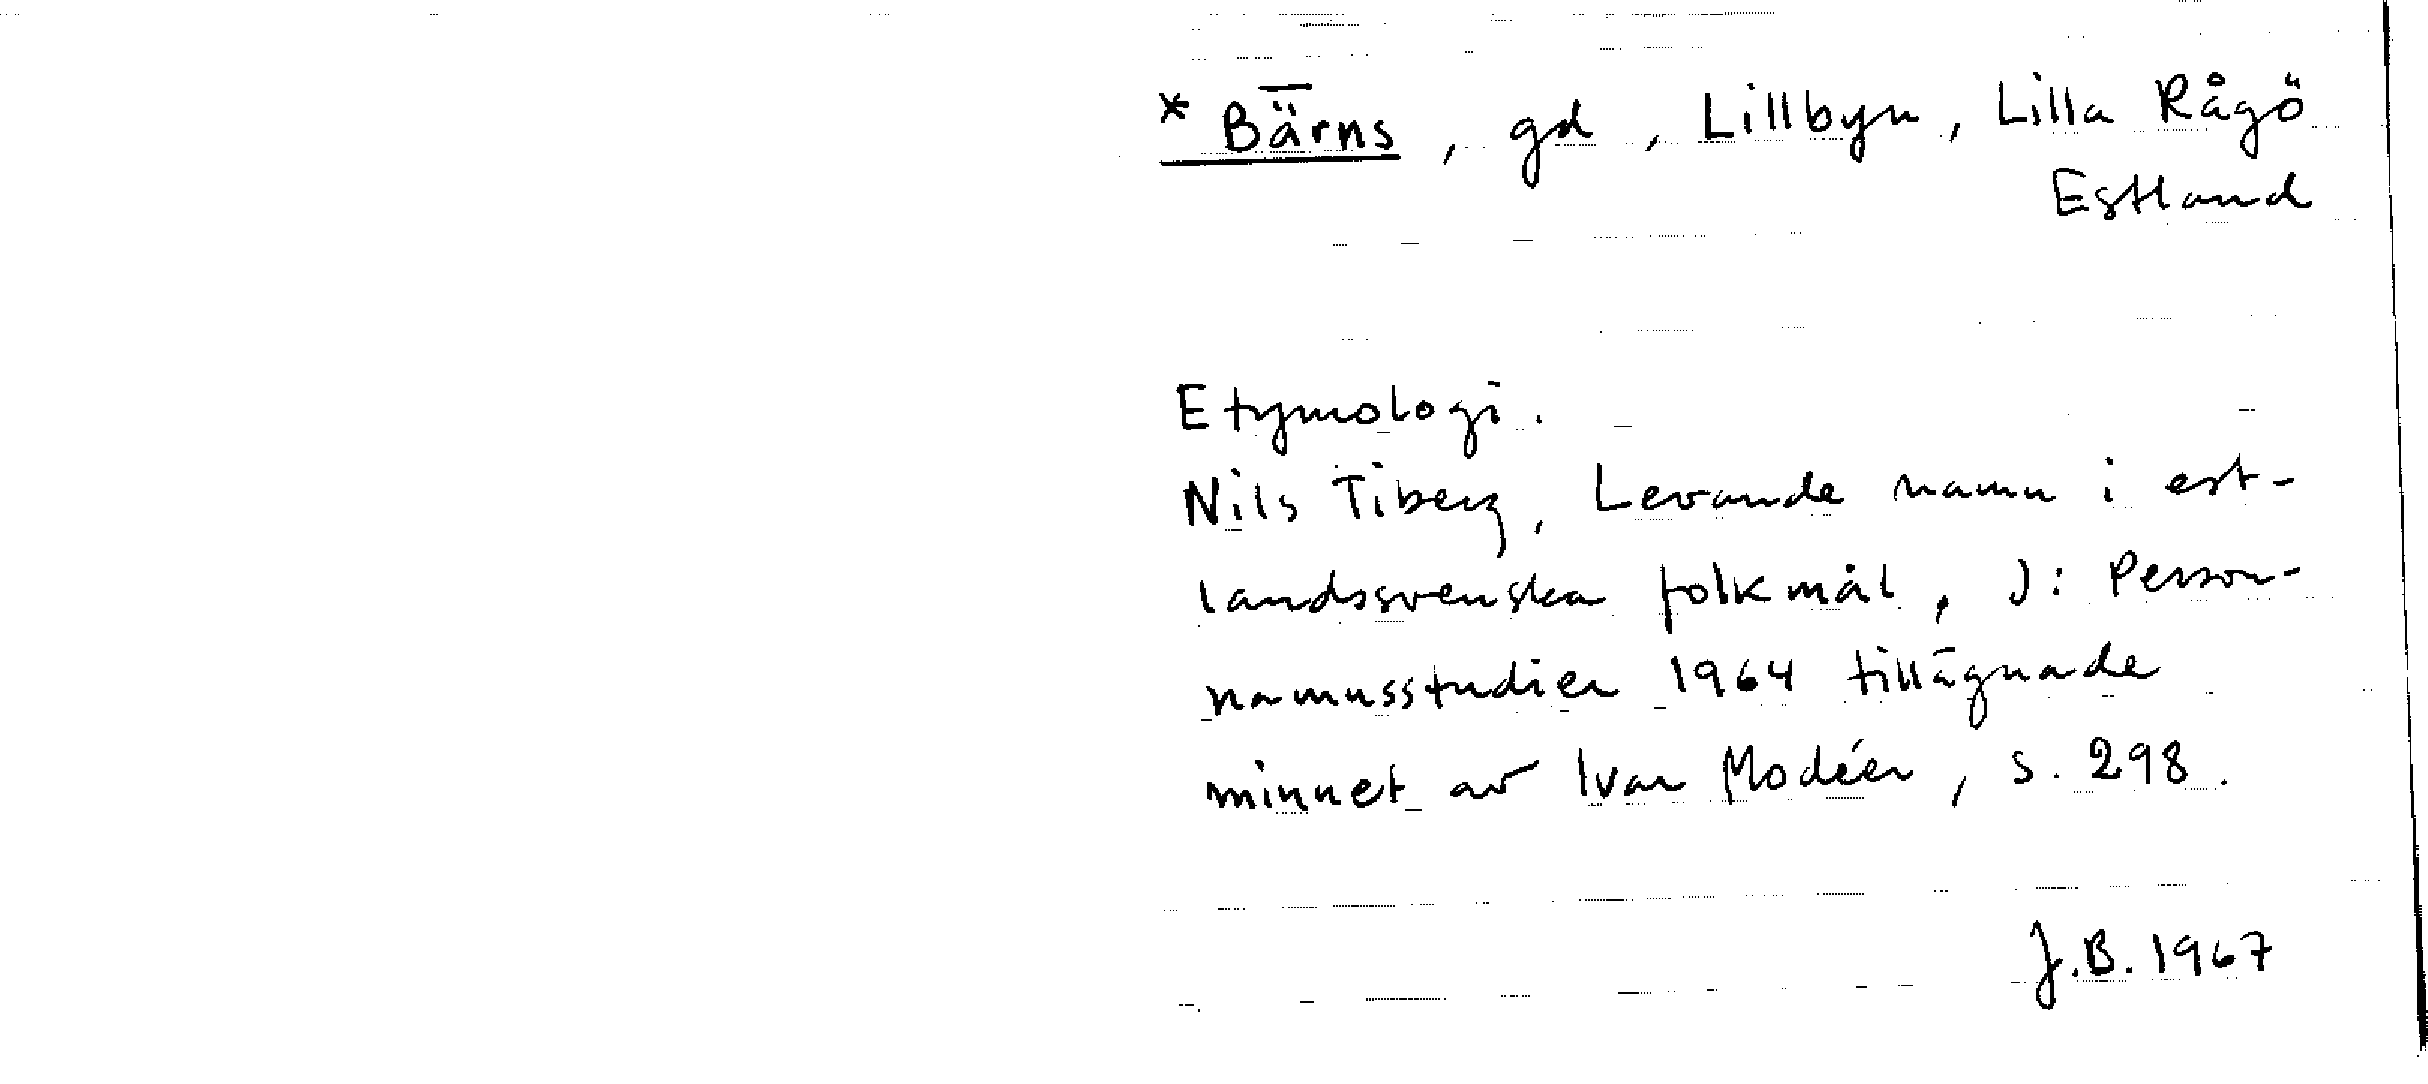 * Bǟrns, gd, Lillbyn, Lilla Rågö
Estland
Etymologi.
Nils Tiberg, Levande namn i est-
landssvenska folkmål, J: Person-
namnsstudier 1964 tillägnade
minnet av Ivar Modéer, s. 298.
J.B. 1967